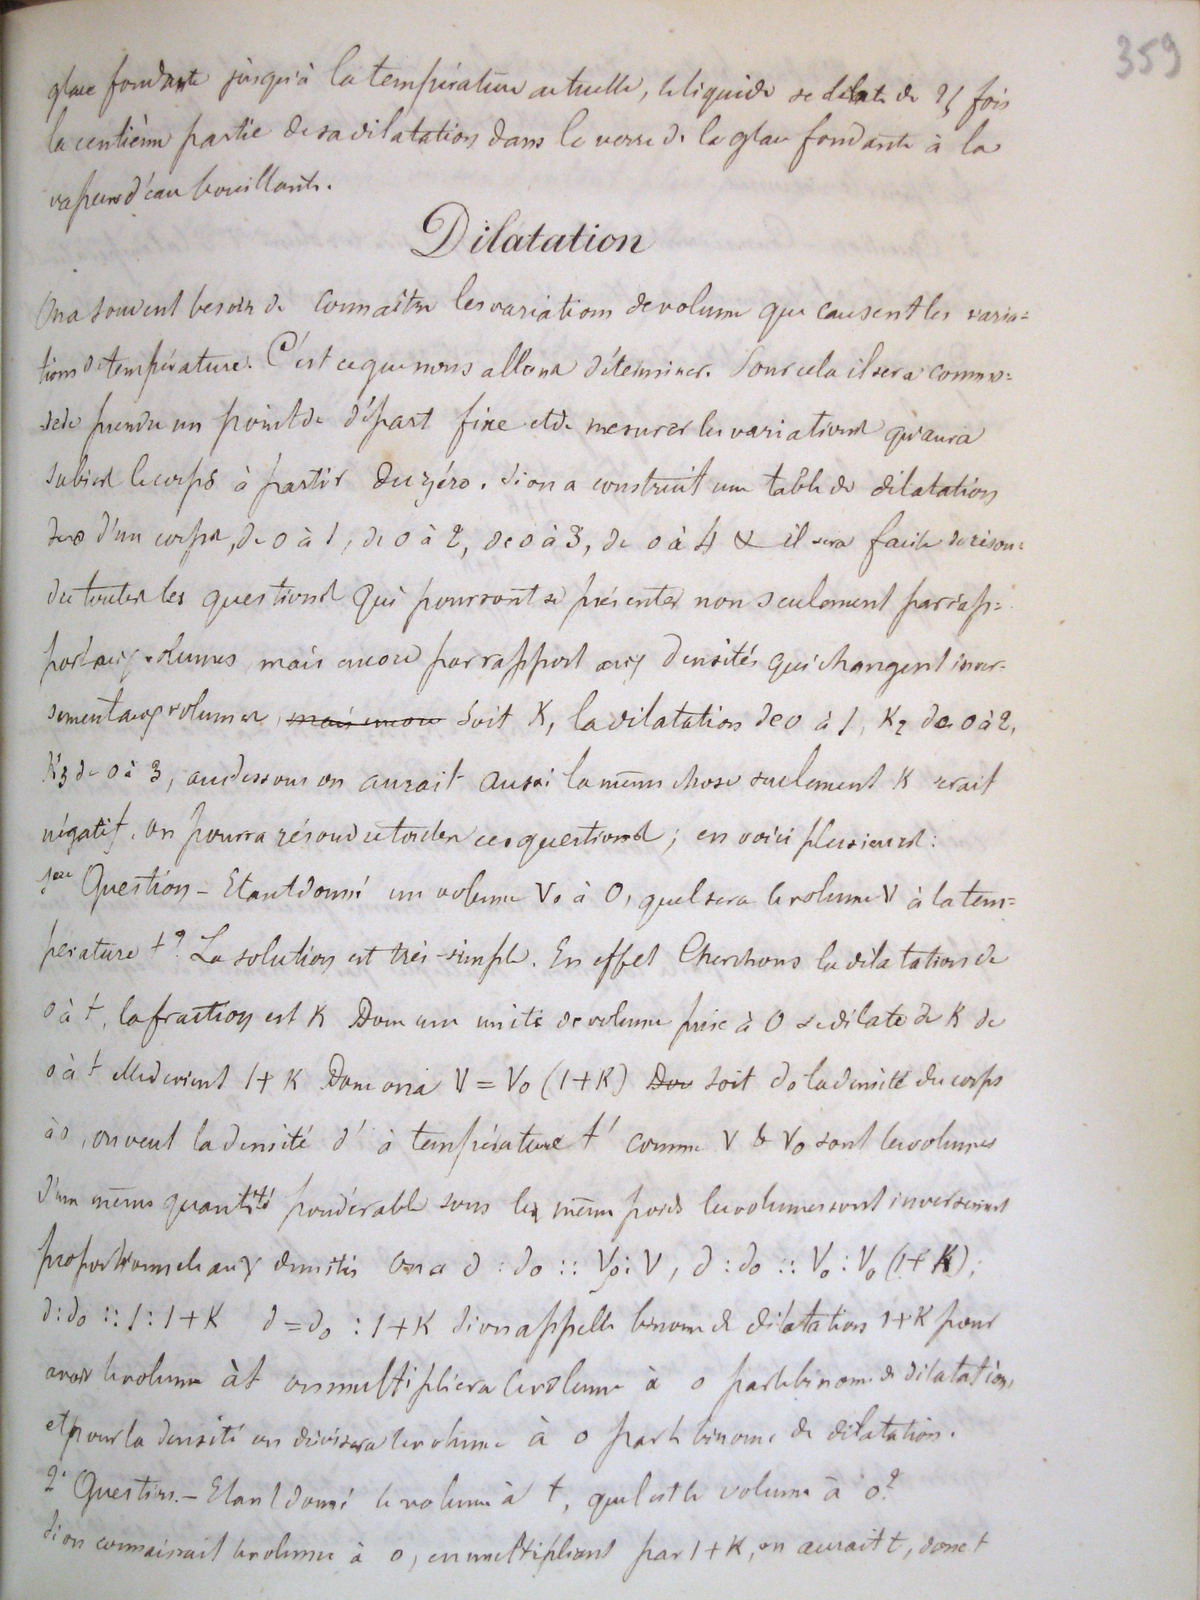 359
glace fondante jusqu'à la température actuelle, le liquide se dilate de 25 fois
la centième partie de sa dilatation dans le verre de la glace fondante à la
vapeur d'eau bouillante.
Dilatation
On a souvent besoin de connaître les variations de volume que causent les varia=
tions de température. C'est ce que nous allons déterminer. Pour cela il sera commo=
de de prendre un point de départ fixe et de mesurer les variations qu'aura
subies le corps à partir du zéro. Si on a construit une table de dilatation
d'un corps, de 0 à 1, de 0 à 2, de 0 à 3, de 0 à 4 & il sera facile de résou=
dre toutes les questions qui pourront se présenter non seulement par rap=
port aux volumes mais encore par rapport aux densités qui changent inver=
sement aux volumes, mais encore Soit K, la dilatation de 0 à 1, K2 de 0 à 2,
K3 de 0 à 3, au dessous on aurait aussi la même chose seulement K serait
négatif. on pourra résoudre toutes ces questions; en voici plusieurs:
1ere Question – Etant donné un volume V0 à 0, quel sera le volume V à la tem=
pérature t? La solution est très-simple. En effet Cherchons la dilatation de
0 à t, la fraction est K Donc une unité de volume prise à 0 se dilate de K de
0 à t elle devient 1+K Donc on a V = V0 (1+K) Don soit d0 la densité du corps
à 0, on veut la densité d' à température t' comme V & V0 sont les volumes
d'une même quantité pondérable sous le même poids les volumes sont inversement
proportionnels aux densités On a d : d0 :: V0 : V, d : d0 :: V0 : V0 (1+K);
d : d0 :: 1 : 1+K d = d0 : 1+K Si on appelle binome de dilatation 1+K pour
avoir le volume à t on multipliera le volume à 0 par le binome de dilatation,
et pour la densité on divisera le volume à 0 par le binome de dilatation.
2e Question. – Etant donné le volume à t, quel est le volume à 0?
Si on connaissait le volume à 0, en multipliant par 1+K, on aurait t, donc t